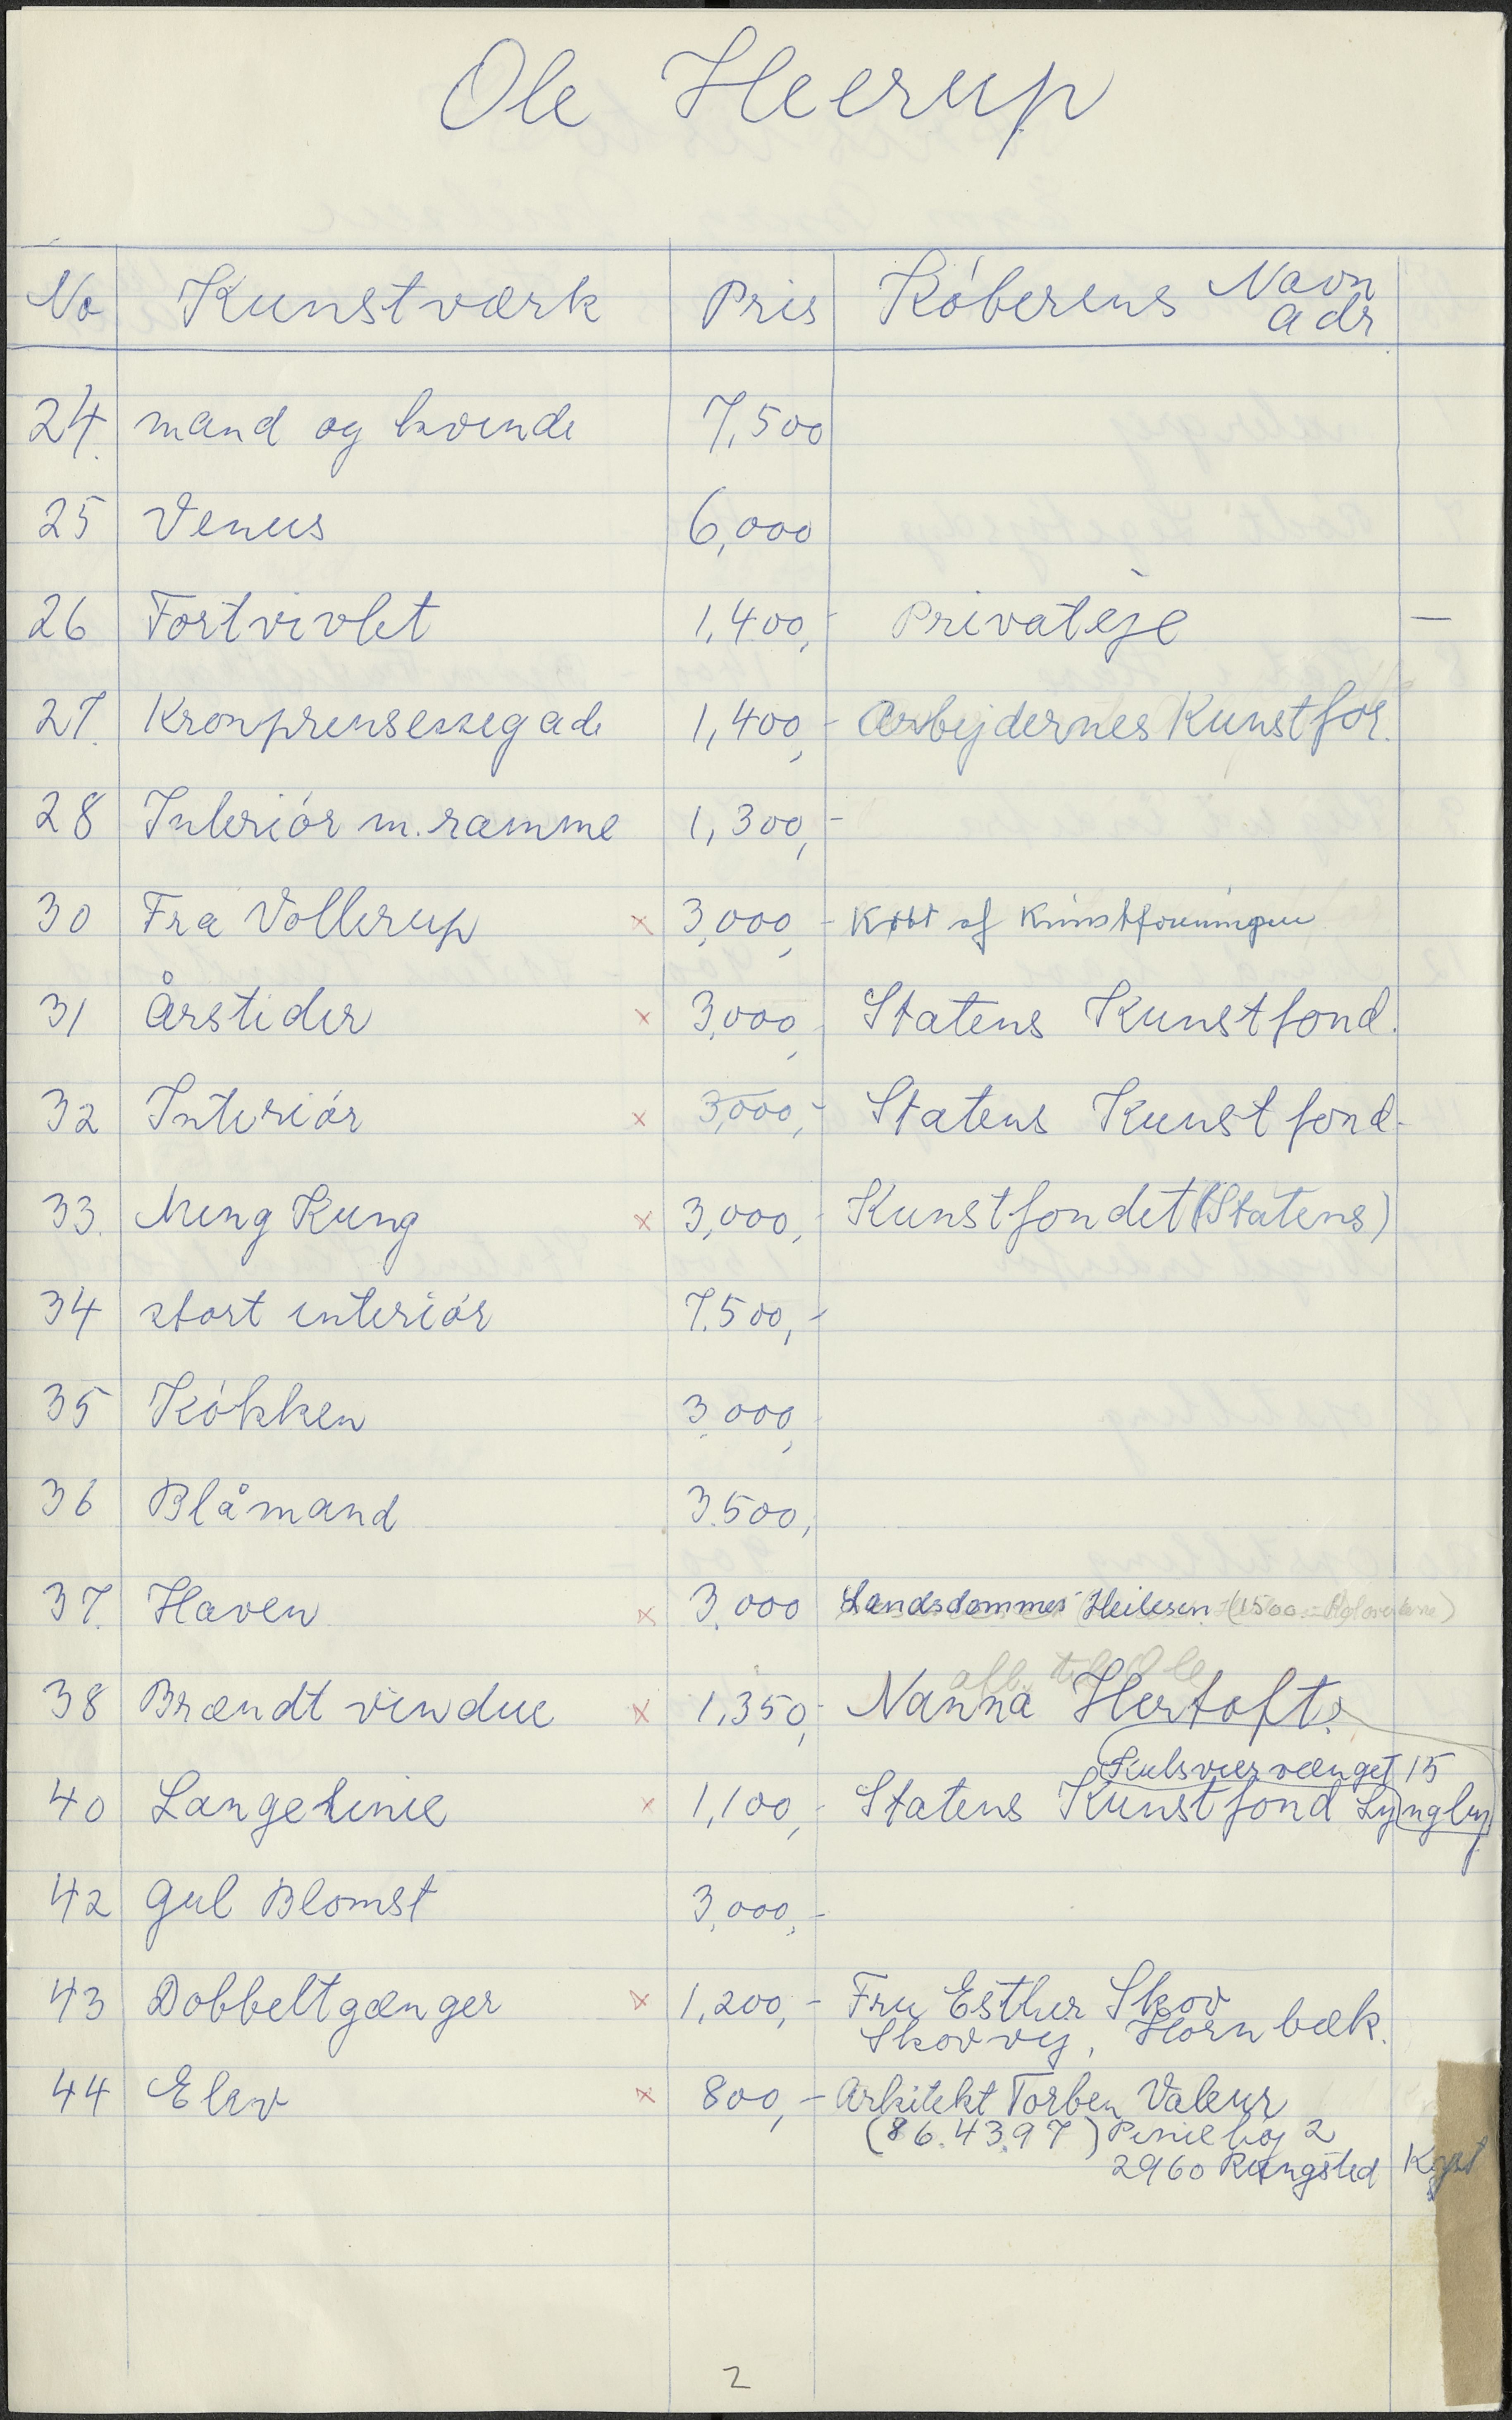 Ole Heerup
No Kunstværk Pris Køberens Navn
adr
24. mand og kvinde 7,500
25 Venus 6,000
26 Fortvivlet 1,400,- Privateje —
27. Kronprinsessegade 1,400,- Arbejdernes Kunstfor.
28 Interiør m. ramme 1,300,-
30 Fra Vollerup x 3,000,- Købt af Kunstforeningen
31 Årstider x 3,000, Statens Kunstfond.
32 Interiør x 3,000,- Statens Kunstfond.
33. Meng Kung x 3,000,- Kunstfondet (Statens)
34 stort interiør 7.500,-
35 Køkken 3.000,
36 Blåmand 3.500,
37. Haven x 3.000 Landsdommer Heilesen (1500.-
afl. til Ole
38 Brændt vindue x 1,350,- Nanna Hertoft
Kulsviervænget 15
40 Langelinie x 1,100,- Statens Kunstfond Lyngby
42 Gul Blomst 3,000,-
43 Dobbeltgænger x 1,200,- Fru Esther Skov
Skovvej, Hornbæk.
44 Elev x 800,- Arkitekt Torben Valeur
(86.43.97) 2
2960 Rungsted Kyst
2